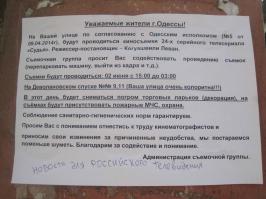 Уважаемые жители г.Одессы!
На Вашей улице по согласованию с Одесским исполкомом (№5 от
09.04.2014г), будут проводиться киносъемки 24-х серийного телесериала
«Судья». Режиссер-постановщик – Когуашвили Леван.
Съемочная группа просит Вас содействовать проведению съемок
(перепарковать машину, выйти из кадра и т.д.).
Съемки будут проводиться: 02 июня с 15:00 до 03:00
На Деволановском спуске №№ 9,11 (Ваша улица очень колоритна!!!)
В этот день будет сниматься погром торговых ларьков (декорация), на
съёмках будут присутствовать пожарные МЧС, охрана.
Соблюдение санитарно-гигиенических норм гарантируем.
Просим Вас с пониманием отнестись к труду кинематографистов и
приносим свои извинения за причиненные неудобства, мы постараемся
поменьше шуметь. Благодарим за содействие и понимание.
Администрация съемочной группы.
НОВОСТИ ДЛЯ РОССИЙСКОГО ТЕЛЕВИДЕНИЯ